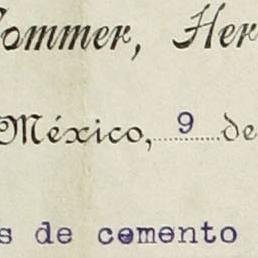 ommer, Her
México, 9 de
s de cemento